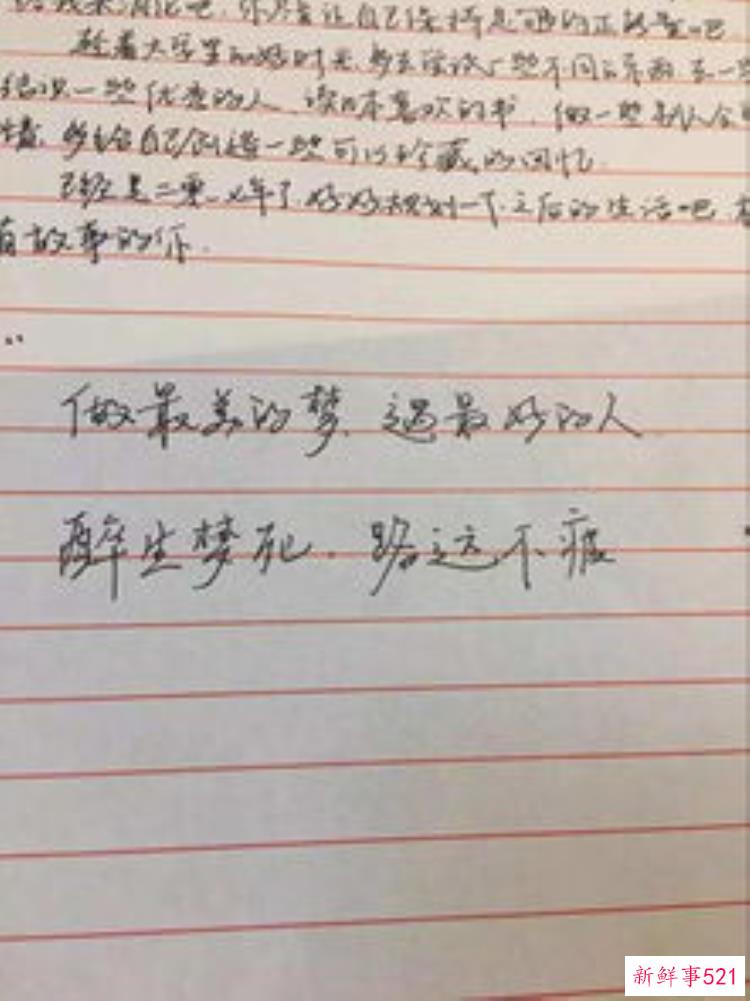 让自己保持足够的正能量吧
趁着大学里的好时光,多去尝试一些不同的东西,去一些
结识一些优秀的人、读几本喜欢的书,做一些
情,多给自己创造一些可以珍藏的回忆.
已经是二零一八年了,好好规划一下之后的生活吧,
有故事的你.
..
做最美的梦、遇最好的人
醉生梦死.路远不疲
新鲜事521